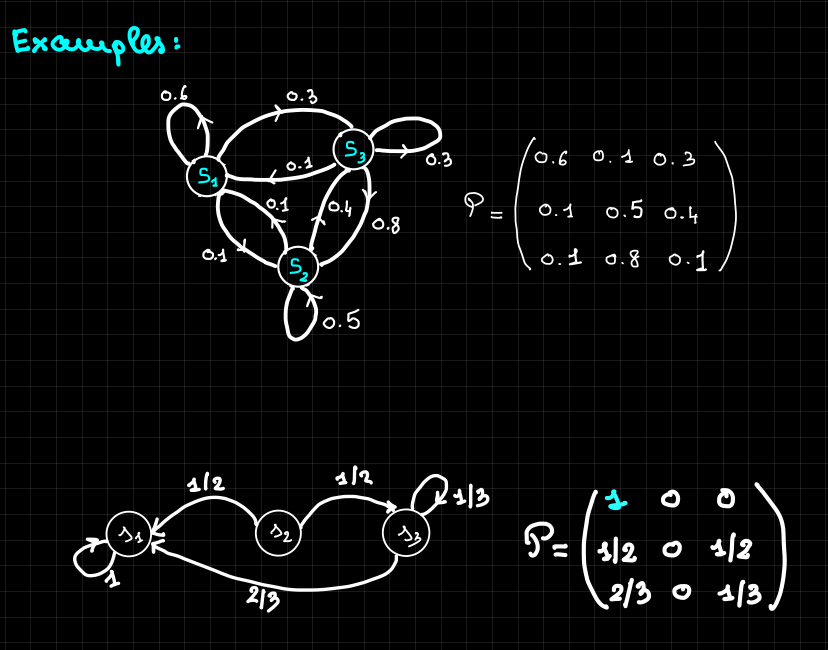 Examples:
0.6
0.3
S3
0.3
0.1
S1
0.1
0.4
0.8
0.1
S2
0.5
P = (0.6 0.1 0.3
0.1 0.5 0.4
0.1 0.8 0.1)
1/2
1/2
1/3
s1
s2
s3
1
2/3
P = (1 0 0
1/2 0 1/2
2/3 0 1/3)